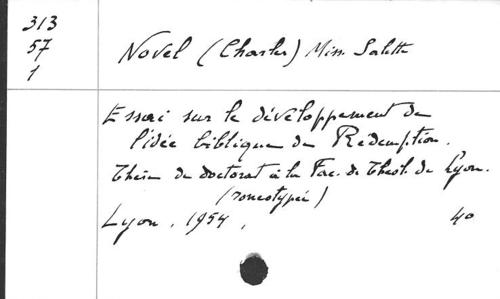 313
57
1
Novel (Charles) Miss. Salette
Essai sur le développement de
l'idée biblique de Redemption.
Thèse de doctorat à la Fac. de Théol. de Lyon.
(roneotypée)
Lyon, 1954,
4o